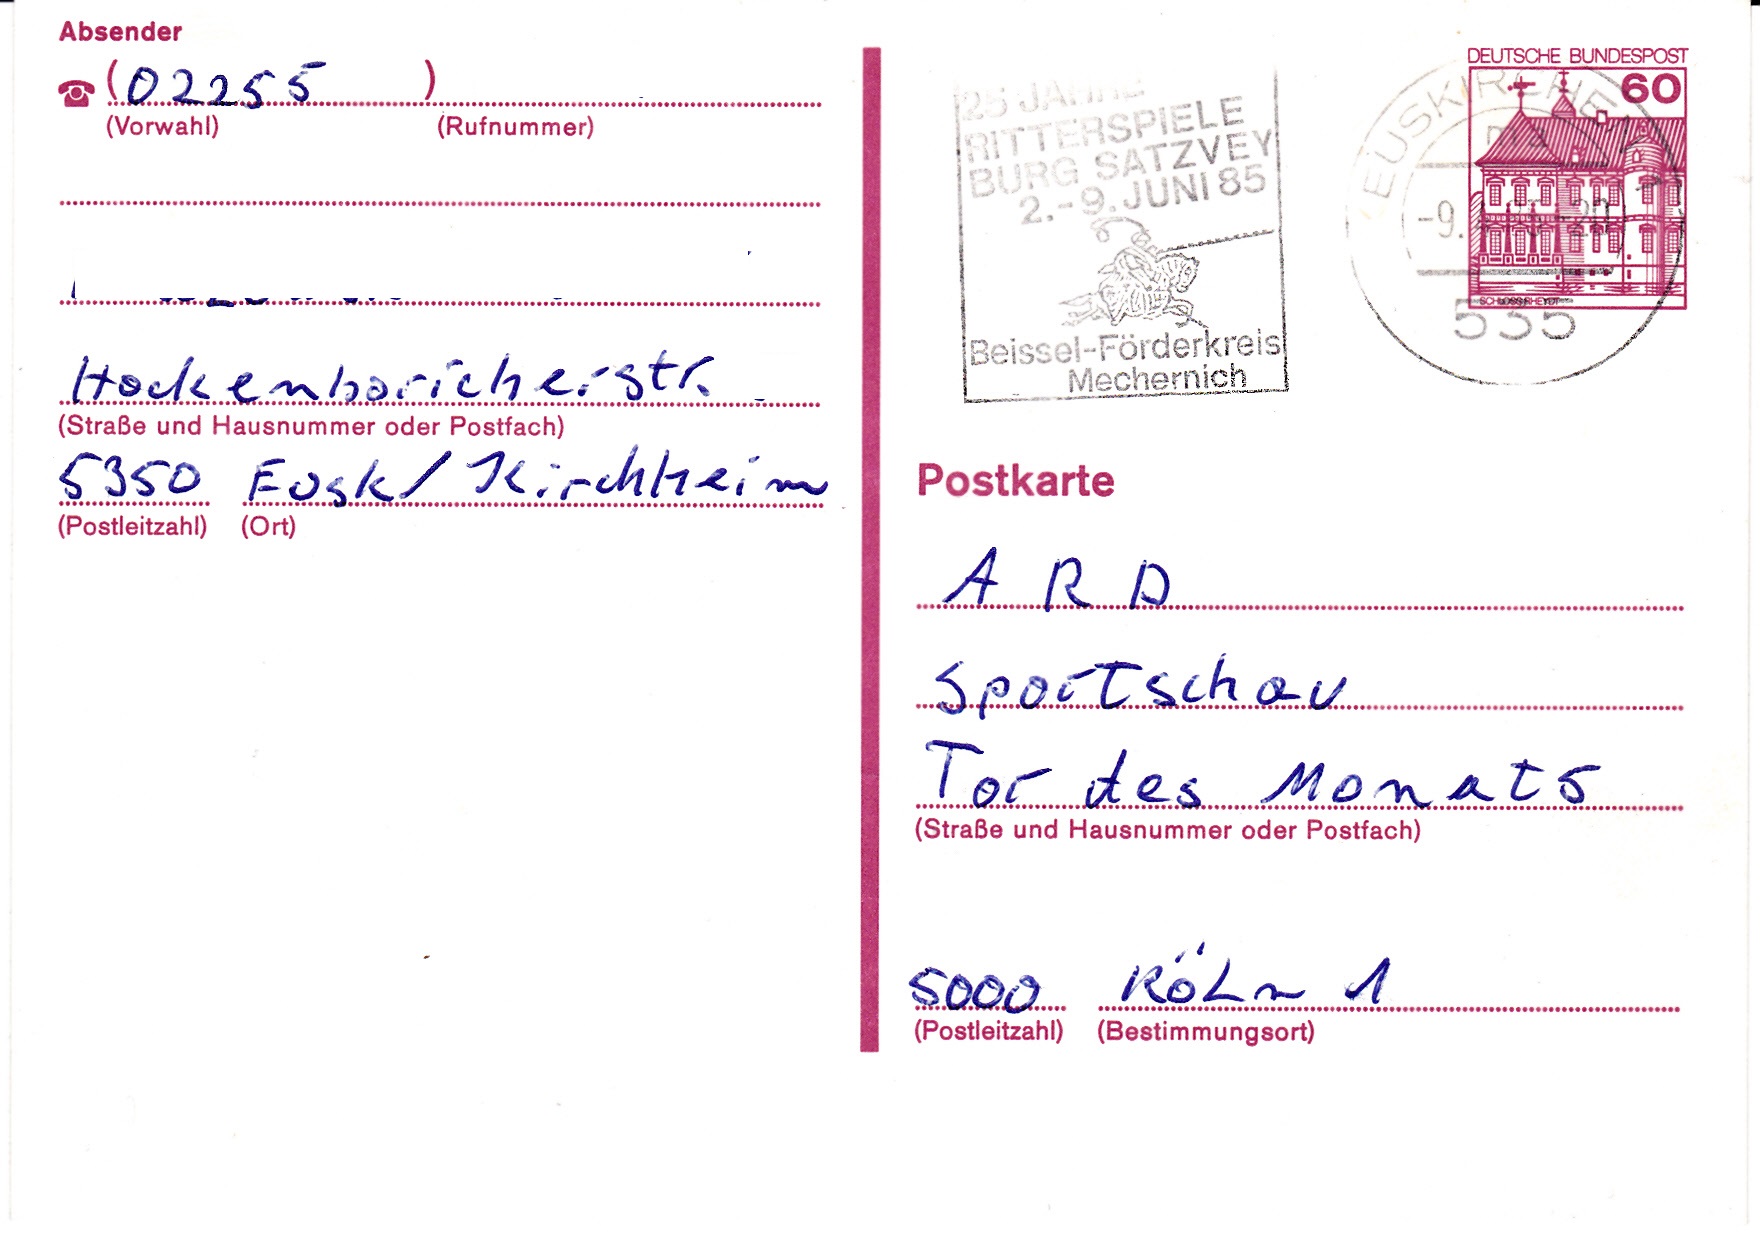 Absender
(02255 )
(Vorwahl) (Rufnummer)
Hockenbroicherstr.
(Straße und Hausnummer oder Postfach)
5350 Eusk/Kirchheim
(Postleitzahl) (Ort)
25 JAHRE
RITTERSPIELE
BURG SATZVEY
2.-9. JUNI 85
Beissel-Förderkreis
Mechernich
DEUTSCHE BUNDESPOST
60
EUSKIRCHEN
-9.
SCHLOSS RHEYDT
535
Postkarte
ARD
Sportschau
Tor des Monats
(Straße und Hausnummer oder Postfach)
5000 Köln 1
(Postleitzahl) (Bestimmungsort)